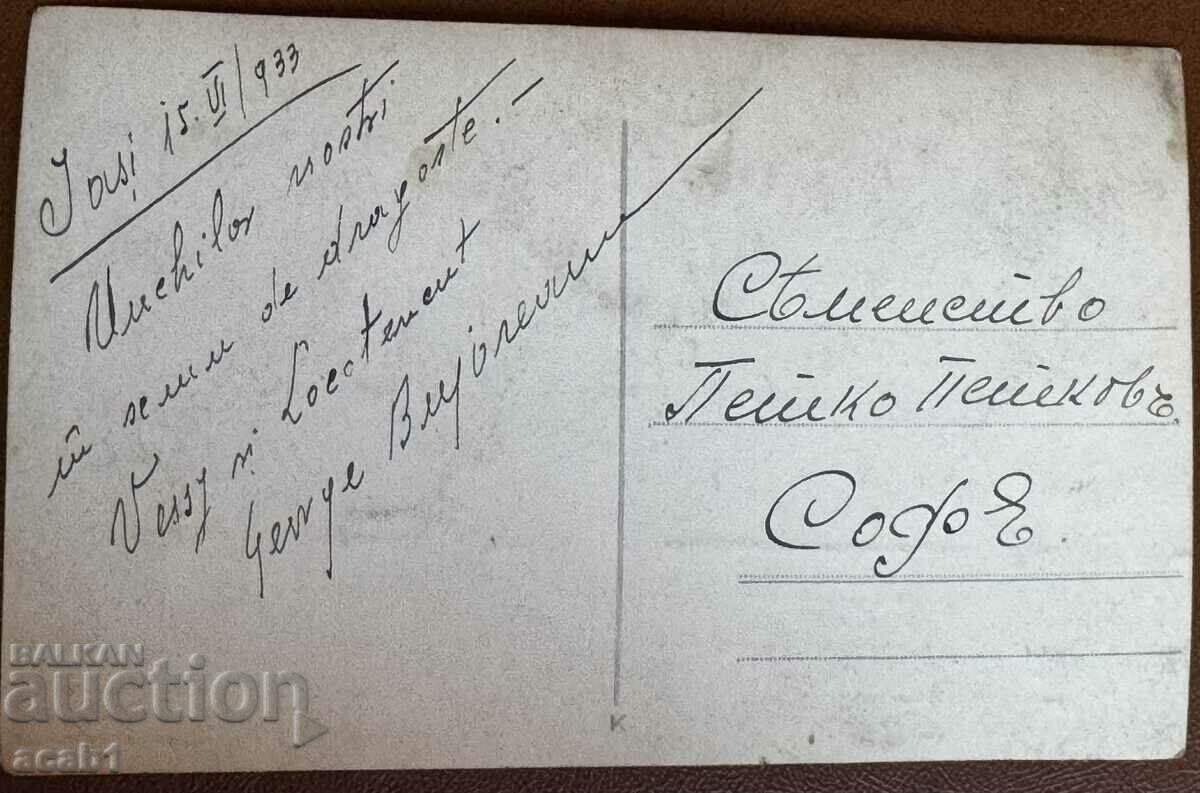 Iași 15.VI/933
Unchilor noștri
în semn de dragoste.-
Vessy și Locotenent
George
Съменство
Пешко Пешковъ
София
K
BALKAN
auction
acab1